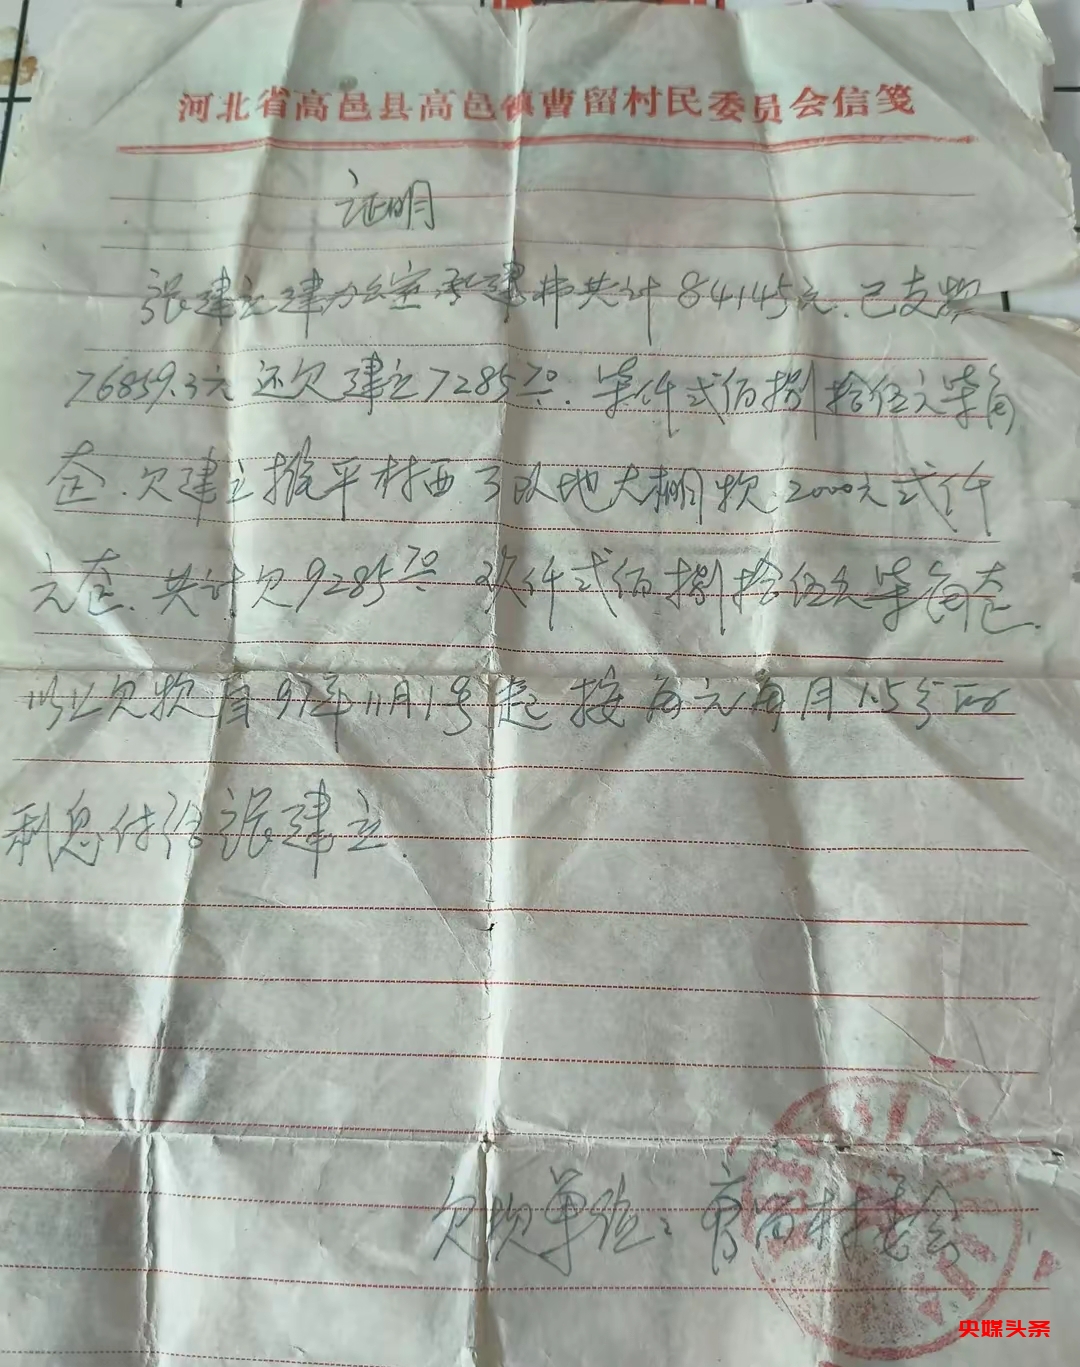 河北省高邑县高邑镇曹留村民委员会信笺
证明
张建立建办公室 建 共计84145元.已支款
76859.3元还欠建立7285.70.柒仟弍佰捌拾伍元柒角
正.欠建立推平村西3队地大棚款.2000元弍仟
元正.共计欠9285.70 玖仟弍佰捌拾伍元柒角正.
以上欠款自97年11月1号起按每元每月1.5分
利息付给张建立.
欠款单位:曹留村委会
央媒头条